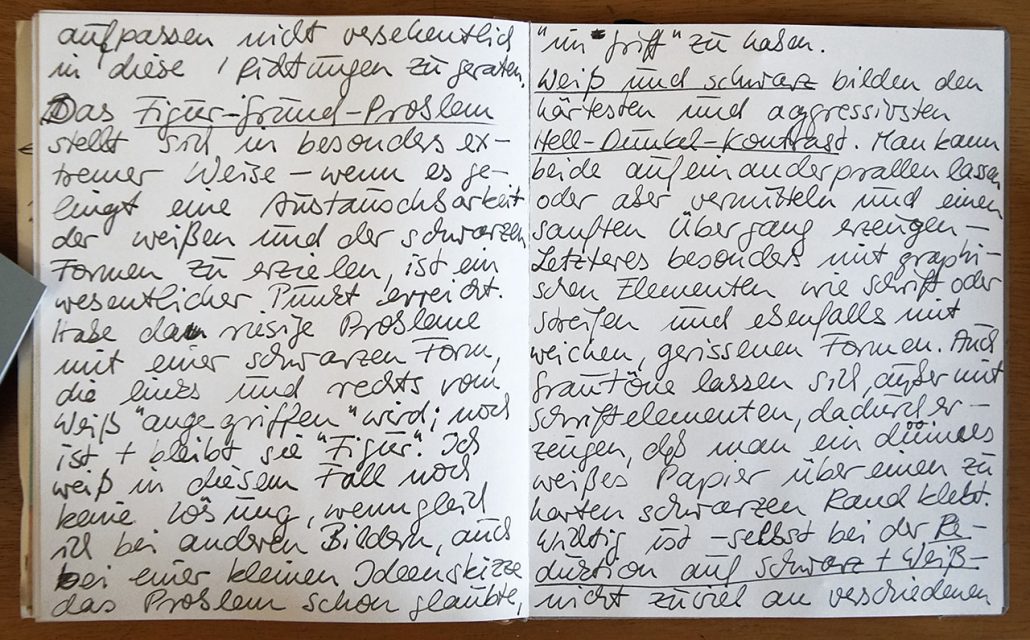 aufpassen nicht versehentlich
in diese Richtungen zu geraten.
Das Figur-Grund-Problem
stellt sich in besonders ex-
tremer Weise – wenn es ge-
lingt eine Austauschbarkeit
der weißen und der schwarzen
Formen zu erzielen, ist ein
wesentlicher Punkt erreicht.
Habe da riesige Probleme
mit einer schwarzen Form,
die links und rechts vom
Weiß "angegriffen" wird; noch
ist + bleibt sie "Figur". Ich
weiß in diesem Fall noch
keine Lösung, wenngleich
ich bei anderen Bildern, auch
bei einer kleinen Ideenskizze
das Problem schon glaubte,
"im Griff" zu haben.
Weiß und schwarz bilden den
härtesten und aggressivsten
Hell-Dunkel-Kontrast. Man kann
beide aufeinanderprallen lassen
oder aber vermitteln und einen
sanften Übergang erzeugen –
Letzteres besonders mit graphi-
schen Elementen wie Schrift oder
Streifen und ebenfalls mit
weichen, gerissenen Formen. Auch
Grautöne lassen sich, außer mit
Schriftelementen, dadurch er-
zeugen, daß man ein dünnes
weißes Papier über einen zu
harten schwarzen Rand klebt.
Wichtig ist – selbst bei der Re-
duktion auf schwarz + weiß –
nicht zuviel an verschiedenen